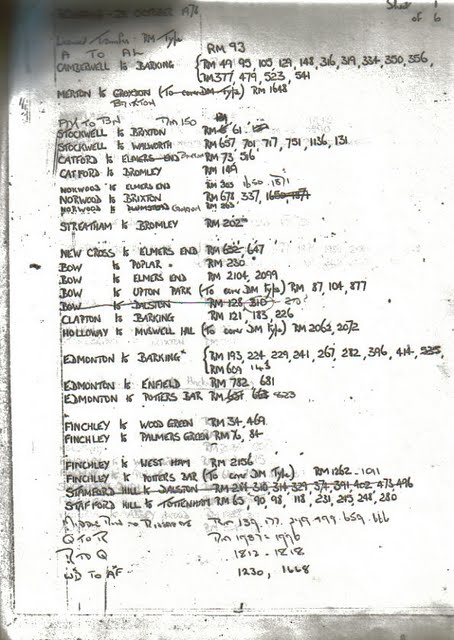 Sheet 1 of 6
28 OCTOBER 1976
Licence Transfer - RM Type
A TO AL RM 93
CAMBERWELL to BARKING RM 49, 95, 105, 129, 148, 316, 319, 334, 350, 356,
RM377, 479, 523, 541
MERTON to CROYDON (To conv DM Type) RM 1648
BRIXTON
TO BN RM 150
STOCKWELL to BRIXTON RM 61
STOCKWELL to WALWORTH RM 657, 701, 717, 751, 1136, 131
CATFORD to ELMERS END RM 73, 516
CATFORD to BROMLEY RM 149
NORWOOD to ELMERS END RM 303 1650 1371
NORWOOD to BRIXTON RM 678, 337, 1650, 1371
NORWOOD to PLUMSTEAD
STREATHAM to BROMLEY RM 202
NEW CROSS to ELMERS END RM 632, 647
BOW to POPLAR RM 230
BOW to ELMERS END RM 2104, 2099
BOW to UPTON PARK (To conv DM Type) RM 87, 104, 877
BOW to DALSTON RM 128, 310
CLAPTON to BARKING RM 121, 183, 226
HOLLOWAY to MUSWELL HILL (To conv DM Type) RM 2062, 2072
EDMONTON to BARKING RM 193, 224, 229, 241, 267, 282, 396, 414, 525,
RM 609 143
EDMONTON to ENFIELD RM 782, 681
EDMONTON to POTTERS BAR RM 823
FINCHLEY to WOOD GREEN RM 34, 469
FINCHLEY to PALMERS GREEN RM 76, 84
FINCHLEY to WEST HAM RM 2156
FINCHLEY to POTTERS BAR (To conv DM Type) RM 1262
STAMFORD HILL to DALSTON RM 281, 310, 314, 329, 374, 391, 402, 473, 496
STAMFORD HILL to TOTTENHAM RM 65, 90, 98, 118, 231, 215, 248, 280
Q TO R
R TO Q 1812 - 1818
TO AF 1230, 1668